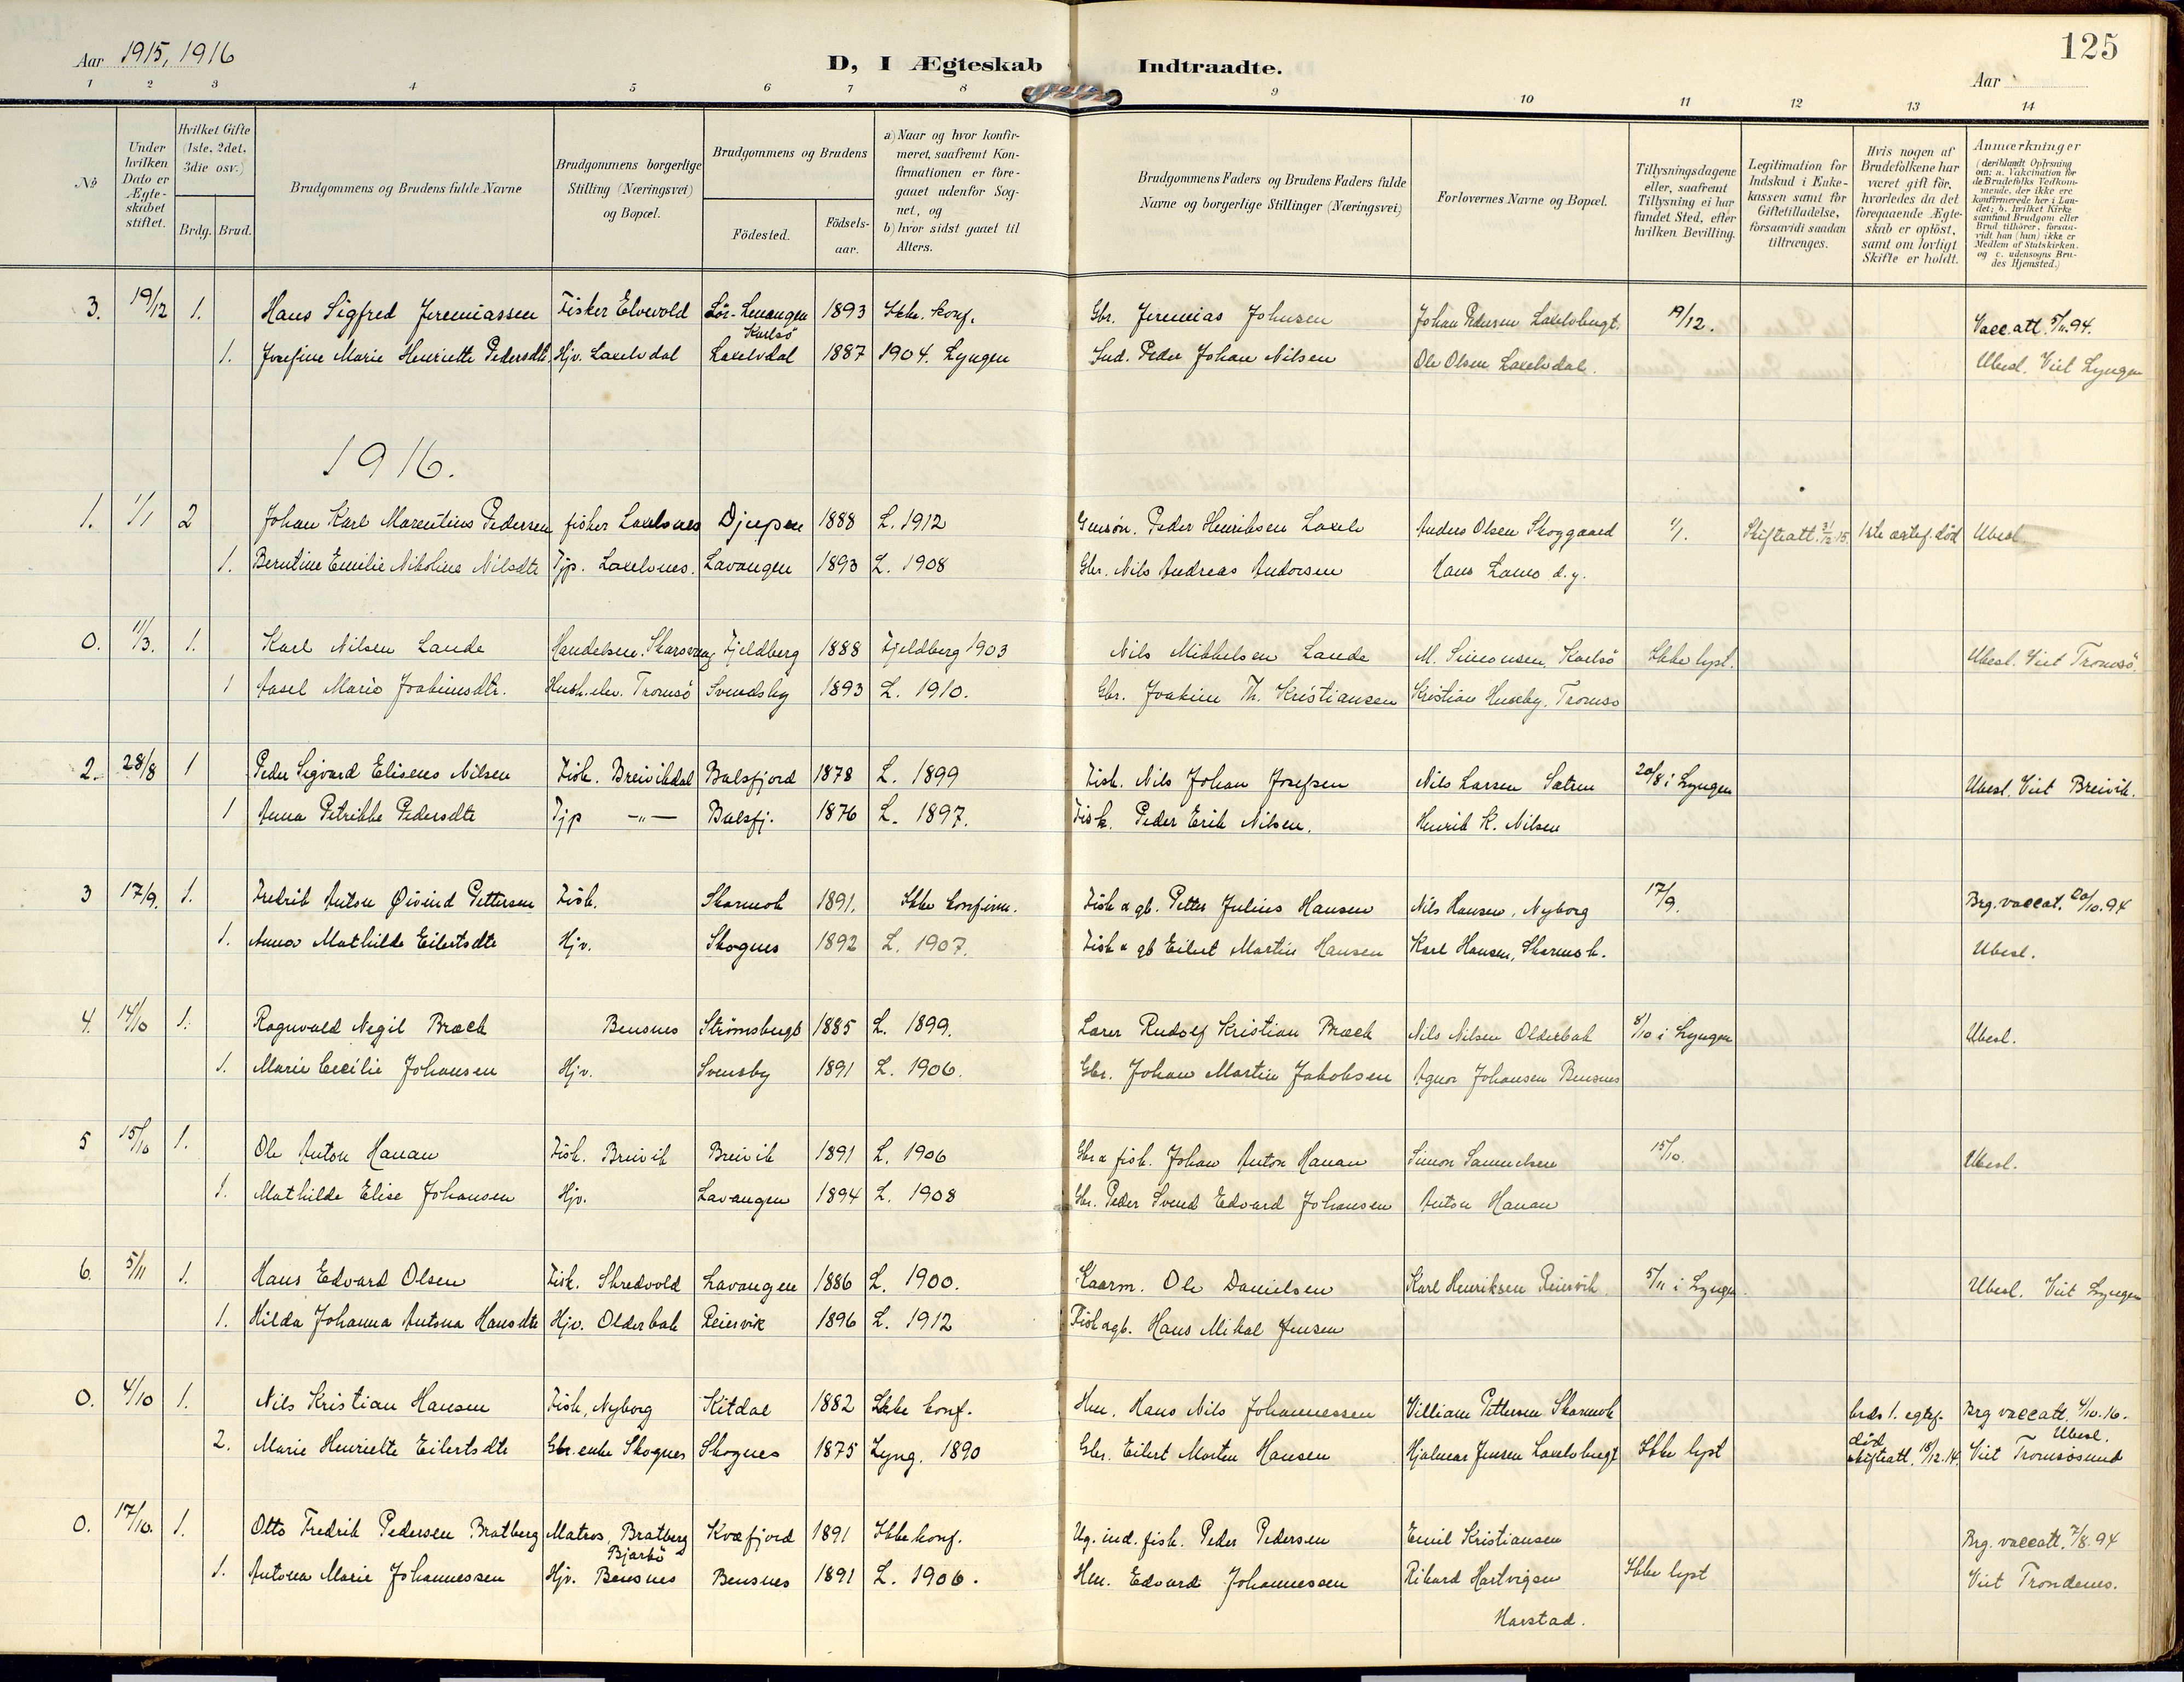 125
Aar 1915, 1916
D, I Ægteskab Indtraadte.
Aar
1 2 3 4 5 6 7 8 9 10 11 12 13 14
No
Under hvilken Dato er Ægteskabet stiftet.
Hvilket Gifte (1ste, 2det, 3die osv.)
Brdg. Brud.
Brudgommens og Brudens fulde Navne
Brudgommens borgerlige Stilling (Næringsvei) og Bopæl.
Brudgommens og Brudens
Födested. Födselsaar.
a) Naar og hvor konfirmeret, saafremt Konfirmationen er foregaaet udenfor Sognet, og
b) hvor sidst gaaet til Alters.
Brudgommens Faders og Brudens Faders fulde Navne og borgerlige Stillinger (Næringsvei)
Forlovernes Navne og Bopæl.
Tillysningsdagene eller, saafremt Tillysning ei har fundet Sted, efter hvilken Bevilling.
Legitimation for Indskud i Enkekassen samt for Giftetilladelse, forsaavidt saadan tiltrænges.
Hvis nogen af Brudefolkene har været gift för, hvorledes da det foregaaende Ægteskab er oplöst, samt om lovligt Skifte er holdt.
Anmærkninger
(deriblandt Oplysning om: a. Vakcination for de Brudefolks Vedkommende, der ikke ere konfirmerede her i Landet; b. hvilket Kirkesamfund Brudgom eller Brud tilhörer, forsaavidt han (hun) ikke er Medlem af Statskirken. og c. udensogns Brudes Hjemsted.)
3. 19/12 1. Hans Sigfred Jeremiassen Fisker Elvevold Sör-Lenangen 1893 Ikke konf. Gbr. Jeremias Johnsen Johan Pedersen Lakselvbugt. 19/12. Vacc.att. 5/11.94.
Karlsö
1. Josefine Marie Henriette Pedersdtr. Hjv. Lakselvdal Lakselvdal 1887 1904. Lyngen Ind. Peder Johan Nilsen Ole Olsen Lakselvdal. Ubesl. Viet Lyngen
1916.
1. 1/1 2 Johan Karl Marentius Pedersen fisker Lakselvnes Djupen 1888 L. 1912 Gmsøn. Peder Henriksen Lakselv Anders Olsen Skoggaard 1/1. Skifteatt. 31/12.15. 1ste ægtef. död Ubesl.
1. Berntine Emilie Nikoline Nilsdtr Tjp. Lakselvnes. Lavangen 1893 L. 1908 Gbr. Nils Andreas Andorsen Hans Larso d.y.
0. 11/3. 1. Karl Nilsen Lande Handelsm. Skarsvaag Fjeldberg 1888 Fjeldberg 1903 Nils Mikkelsen Lande M. Simonsen, Karlsö Ikke lyst. Ubesl. Viet Tromsö.
1 Aasel Marie Joakimsdtr. Hush.elev. Tromsö Svendsby 1893 L. 1910. Gbr. Joakim Th. Kristiansen Kristian Huseby, Tromsö
2. 28/8 1 Peder Sigvard Eliseus Nilsen Fisk. Breivikdal Balsfjord 1878 L. 1899 Fisk. Nils Johan Josefsen Nils Larsen Sætren 20/8 i Lyngen Ubesl. Viet Breivik.
1 Anna Petrikke Pedersdtr Tjp -"- Balsfj. 1876 L. 1897. Fisk. Peder Erik Nilsen. Henrik K. Nilsen
3 17/9. 1. Fredrik Anton Øivind Pettersen Fisk. Skarmok 1891. Ikke konfirm. Fisk & gb. Petter Julius Hansen Nils Hansen, Nyborg 17/9. Brg. vaccat. 20/10.94
1. Anna Mathilde Eilertsdtr Hjv. Skognes 1892 L. 1907. Fisk & gb Eilert Martin Hansen Karl Hansen, Skarmok. Ubesl.
4. 14/10 1. Ragnvald Negil Brock Bensnes Strömsbugt 1885 L. 1899. Lærer Rudolf Kristian Brock Nils Nilsen Olderbak 8/10 i Lyngen Ubesl.
1. Marie Cecilie Johansen Hjv. Svensby 1891 L. 1906. Gbr. Johan Martin Jakobsen Agnor Johansen Bensnes
5 15/10 1. Ole Anton Hanan Fisk. Breivik Breivik 1891 L. 1906 Gbr & fisk. Johan Anton Hanan Simon Samuelsen 15/10. Ubesl.
1. Mathilde Elise Johansen Hjv. Lavangen 1894 L. 1908 Gbr. Peder Svend Edvard Johansen Anton Hanan
6. 5/11 1. Hans Edvard Olsen Fisk. Skredvold Lavangen 1886 L. 1900. Kaarm. Ole Danielsen Karl Henriksen Reiervik 5/11 i Lyngen Ubesl. Viet Lyngen
1. Hilda Johanna Antona Hansdtr Hjv. Olderbak Reiervik 1896 L. 1912 Fisk & gb. Hans Mikal Jensen
0. 4/10 1. Nils Kristian Hansen Fisk, Nyborg Kitdal 1882 Ikke konf. Hm. Hans Nils Johannessen Villiam Pettersen Skarmok brds 1. egtef. Brg vaccatt. 4/10.16.
Ubesl.
2. Marie Henriette Eilertsdtr Gbr. enke Skognes Skognes 1875 Lyng. 1890 Gbr. Eilert Morten Hansen Hjalmar Jensen Lakselvbugt Ikke lyst död skifteatt. 18/12.14. Viet Tromsösund
0. 17/10. 1. Otto Fredrik Pedersen Bratberg Matros, Bratberg Kvæfjord 1891 Ikke konf. Ug. ind. fisk. Peder Pedersen Emil Kristiansen Brg. vaccatt. 7/8.94
Bjarkö
1. Antona Marie Johannessen Hjv. Bensnes Bensnes 1891 L. 1906. Hm. Edvard Johannessen Rikard Hartvigsen Ikke lyst Viet Trondenes.
Harstad.